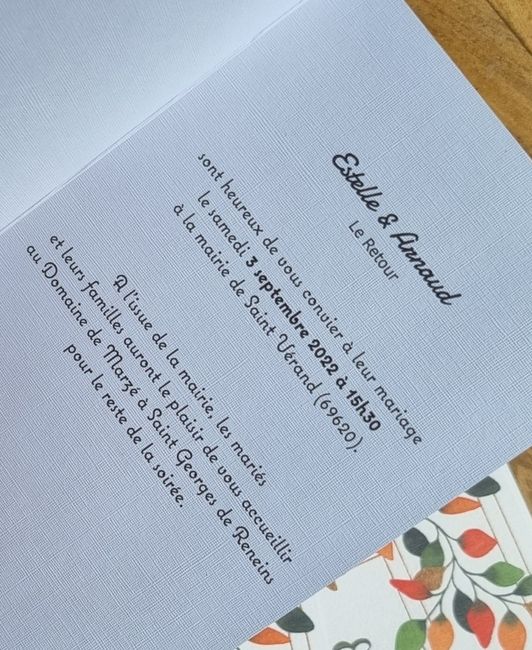 Estelle & Arnaud
Le Retour
sont heureux de vous convier à leur mariage
le samedi 3 septembre 2022 à 15h30
à la mairie de Saint Vérand (69620).
A l'issue de la mairie, les mariés
et leurs familles auront le plaisir de vous accueillir
au Domaine de Marzé à Saint Georges de Reneins
pour le reste de la soirée.